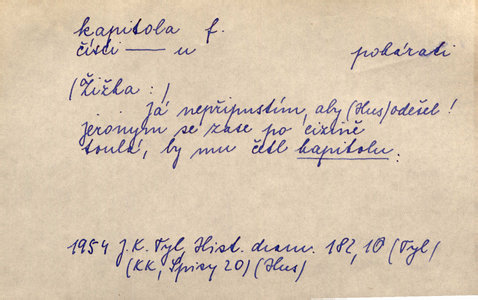 kapitola f.
čísti — u pokárati
(Žižka:)
já nepřipustím, aby (Hus) odešel!
jeronym se zase po cizině
toulá, by mu četl kapitolu.
1954 J. K. Tyl, Hist. dram. 182, 10 (Tyl)
(KK, Spisy 20) (Hus)